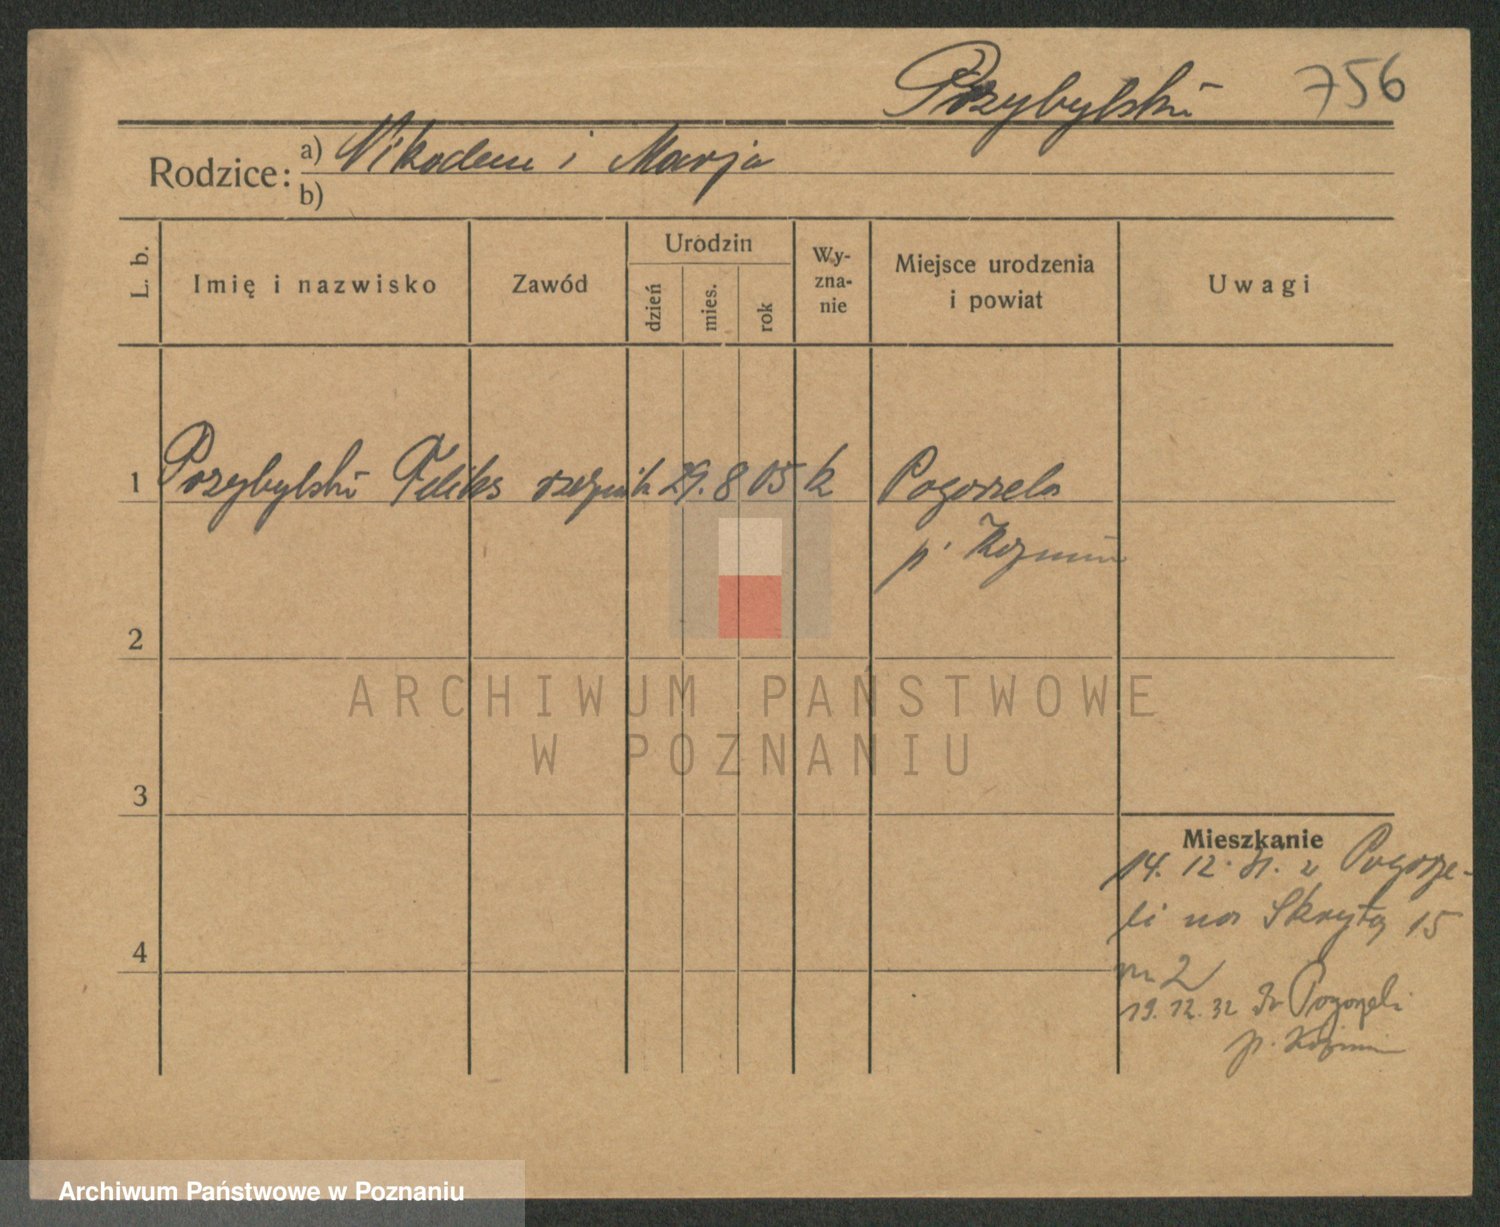 Przybylski 756
Rodzice: a) Nikodem i Marja
b)
L. b.
Imię i nazwisko
Zawód
Urodzin
dzień
mies.
rok
Wy-
zna-
nie
Miejsce urodzenia
i powiat
Uwagi
1 Przybylski Feliks rzeźnik 29. 8 05 k Pogorzela
p. Koźmin
2
ARCHIWUM PAŃSTWOWE
W POZNANIU
3
Mieszkanie
14. 12. 31. z Pogorze-
li na Skrytą 15
m 2
4
19. 12. 32 do Pogorzeli
p. Koźmin
Archiwum Państwowe w Poznaniu